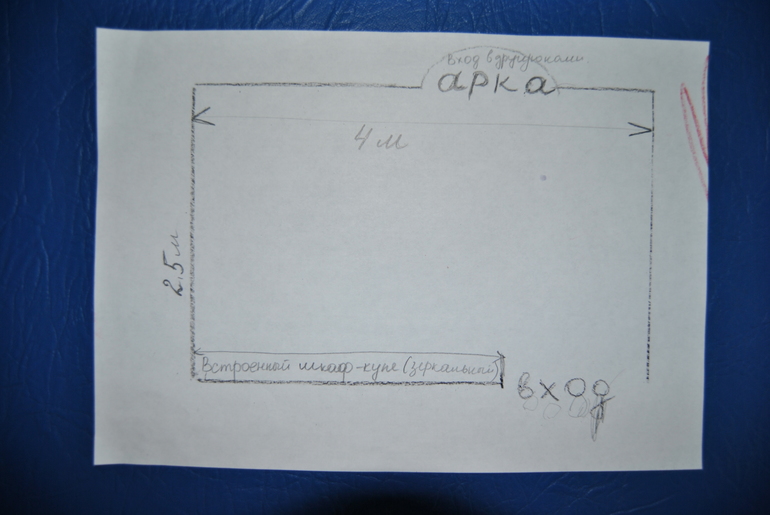 вход в др
арка
4 м
2,5 м
встроенный шкаф-купе (зеркальный)
вход